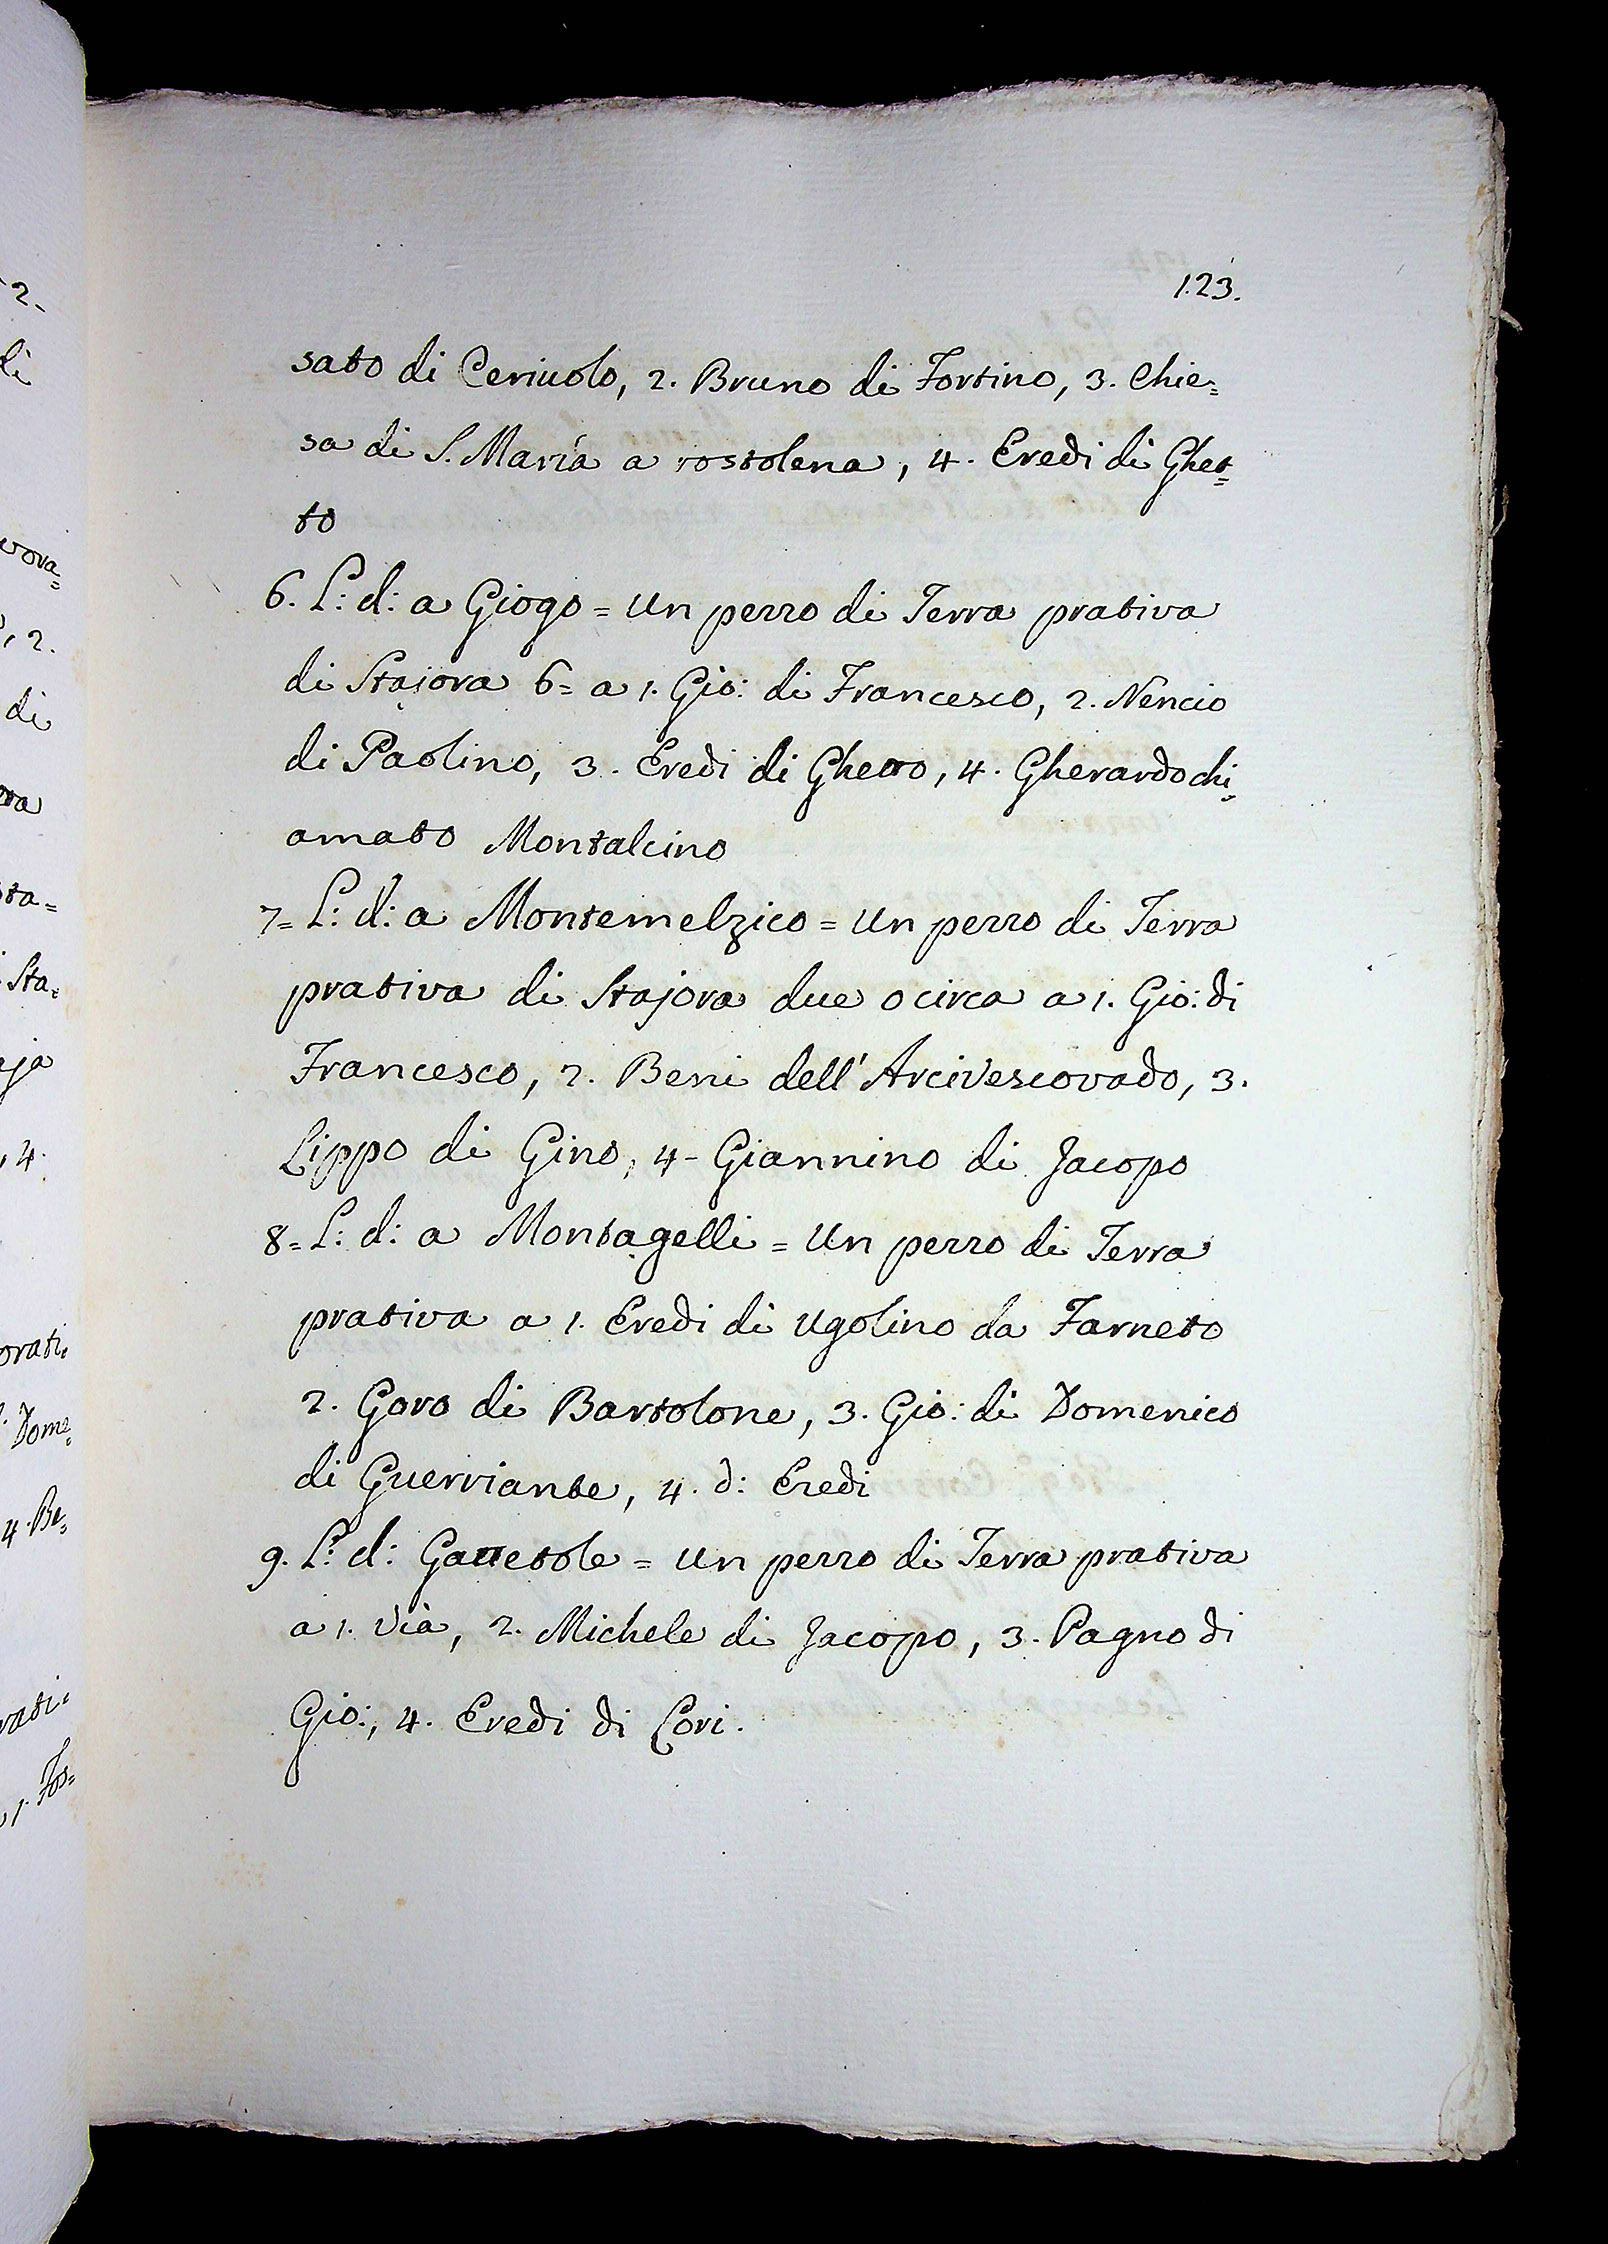 123.
sato di Ceriuolo, 2. Bruno di Fortino, 3. Chie=
sa di S. Maria a rostolena, 4. Eredi di Ghet=
to
6. L: d: a Giogo = Un pezzo di Terra prativa
di Stajora 6= a 1. Gio: di Francesco, 2. Nencio
di Paolino, 3. Eredi di Ghetto, 4. Gherardo chi=
amato Montalcino
7= L: d: a Montemelzico = Un pezzo di Terra
prativa di Stajora due o circa a 1. Gio: di
Francesco, 2. Beni dell'Arcivescovado, 3.
Lippo di Gino, 4- Giannino di Jacopo
8= L: d: a Montagelli = Un pezzo di Terra
prativa a 1. Eredi di Ugolino da Farneto
2. Goro di Bartolone, 3. Gio: di Domenico
di Guerriante, 4. d: Eredi
9. L: d: Gattetole = Un pezzo di Terra prativa
a 1. Via, 2. Michele di Jacopo, 3. Pagno di
Gio:, 4. Eredi di Cori.
2.
li
vora=
, 2.
di
sta=
Sta=
aja
, 4.
orati=
Dome=
4. Be=
rati=
1. Fos=